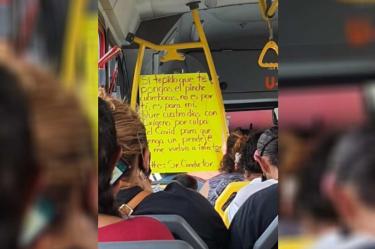 Si te pido que te
pongas el pinche
cubrebocas, no es por
ti, es para mi,
estuve cuatro dias con
oxigeno por culpa
el Covid para que
venga un pendejo
me vuelva a infectar
Atte: Sr. Conductor